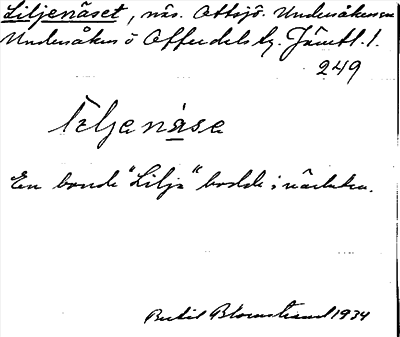 Liljenäset, näs. Ottsjö. Undersåkers sn
Undersåkers o Offerdals tg. Jämtl. l.
249
lìljenäsa
En bonde "Lilja" bodde i närheten.
Bertil Blomstrand 1934